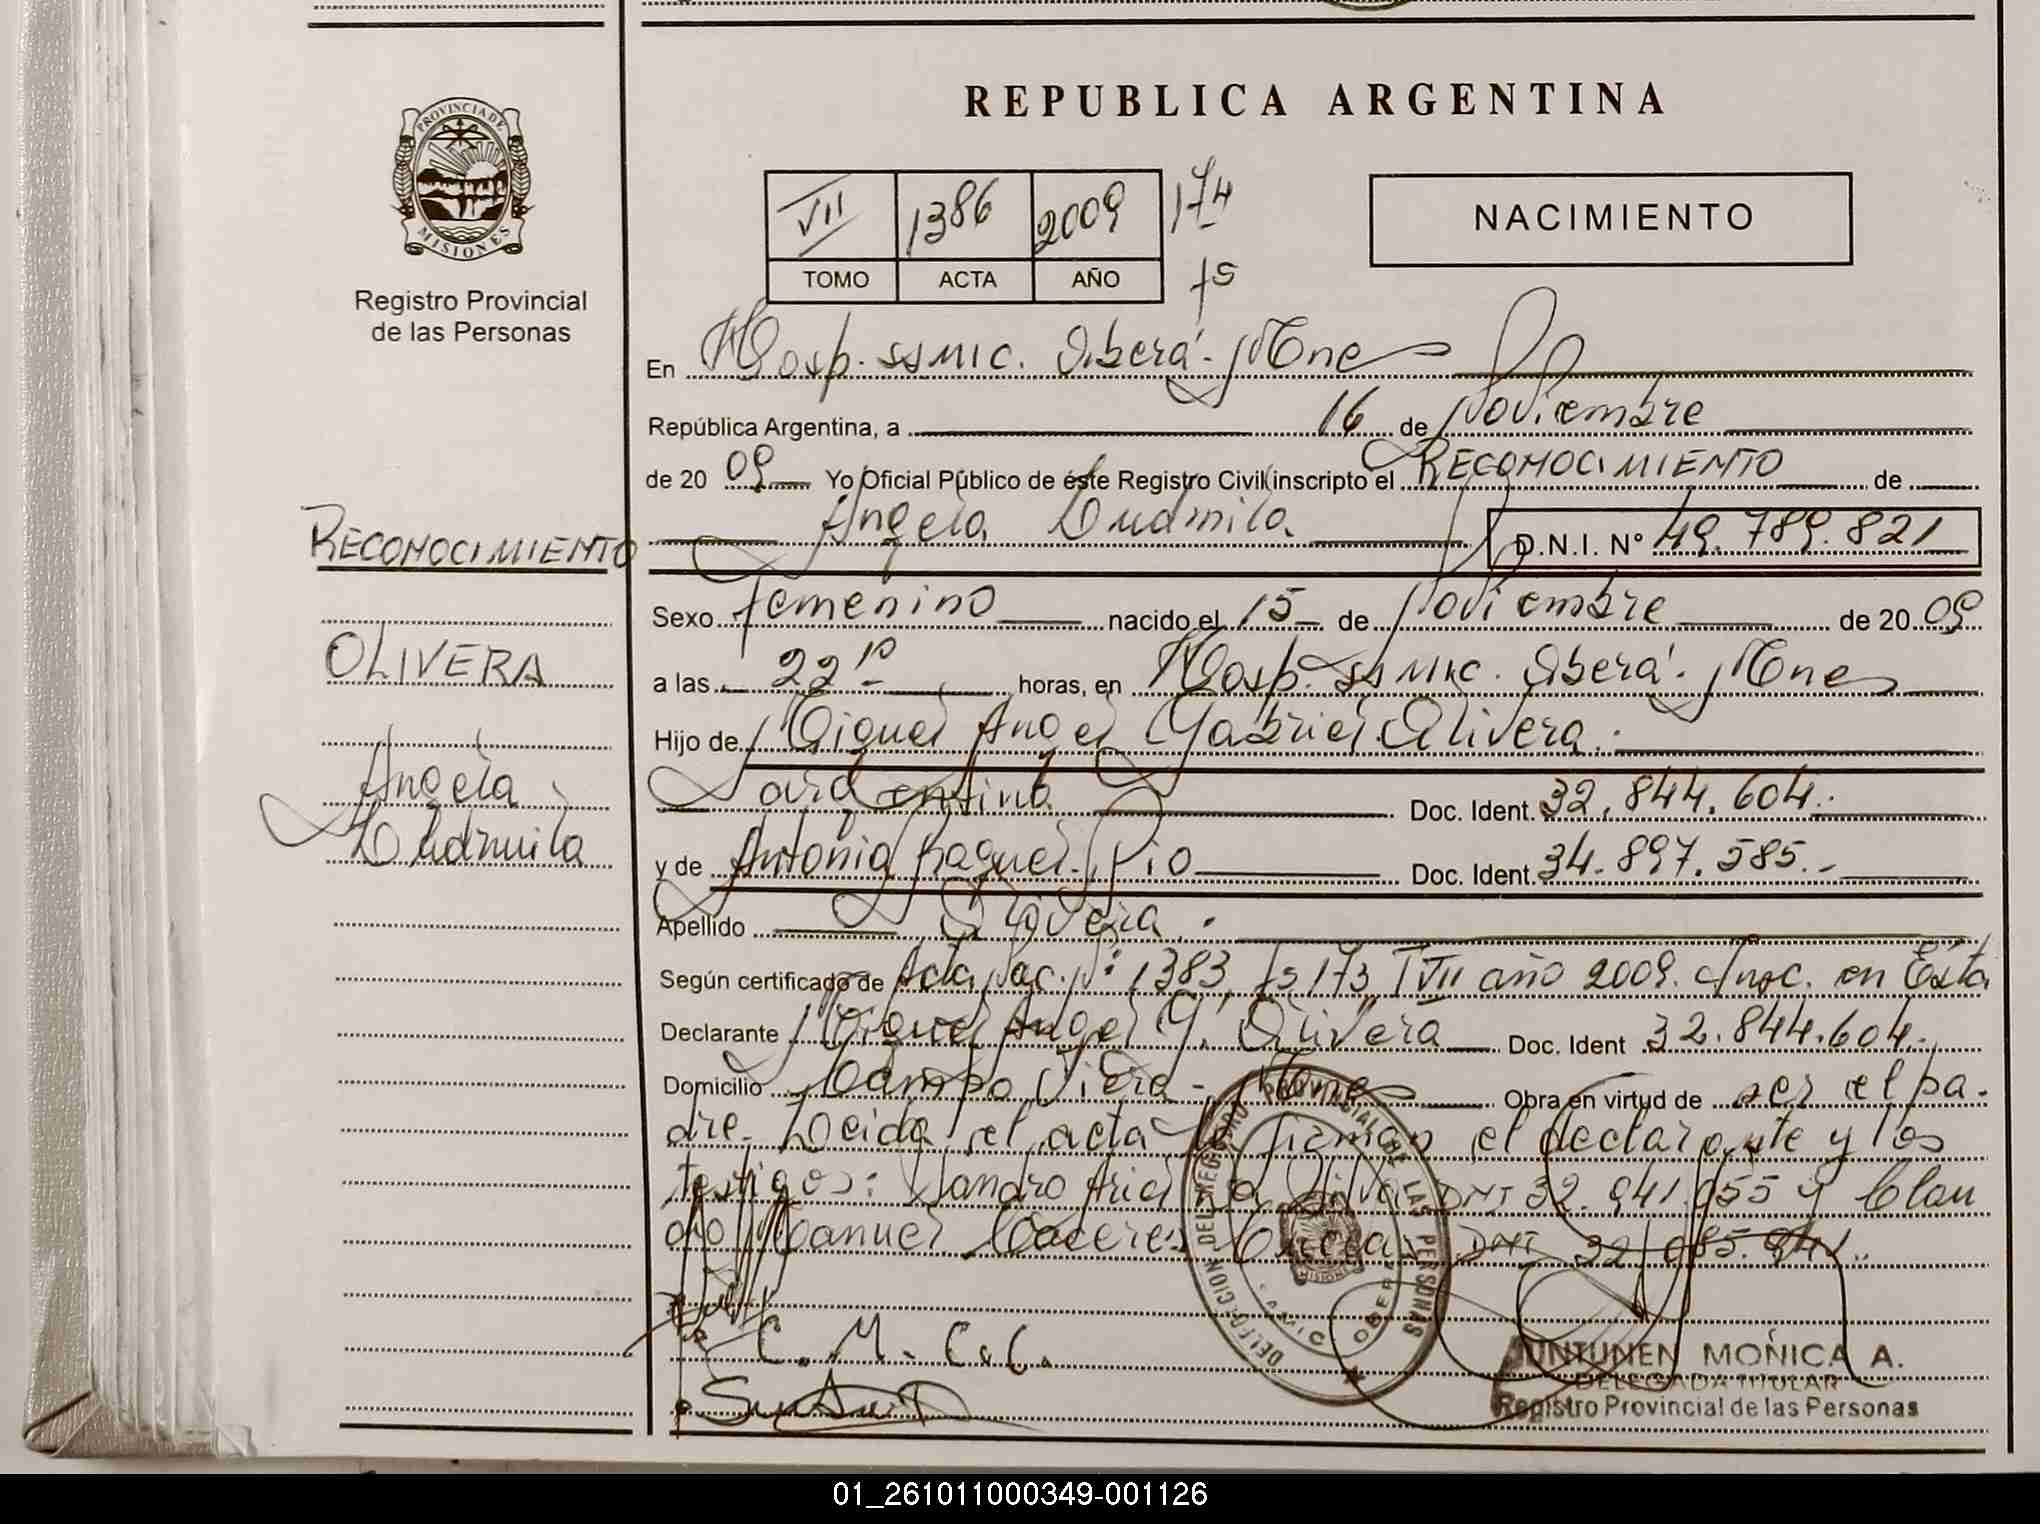 REPUBLICA ARGENTINA
PROVINCIA DE
MISIONES
Registro Provincial
de las Personas
VII 1386 2009 174
TOMO ACTA AÑO fs
NACIMIENTO
En Hosp. SSMIC. Oberá. Mnes
República Argentina, a 16 de Noviembre
de 20 09 Yo Oficial Público de éste Registro Civil inscripto el RECONOCIMIENTO de
Angela Ludmila D.N.I. N° 49.789.821
RECONOCIMIENTO
OLIVERA
Angela
Ludmila
Sexo femenino nacido el 15 de Noviembre de 20 09
a las 22 10 horas, en Hosp. SSMIC. Oberá. Mnes
Hijo de Miguel Angel Gabriel Olivera.
argentino Doc. Ident. 32.844.604.
y de Antonia Raquel Pio Doc. Ident. 34.897.585.-
Apellido Olivera.
Según certificado de Acta Nac. N°: 1383 fs 173 T VII año 2009. Insc. en Esta
Declarante Miguel Angel G. Olivera Doc. Ident 32.844.604.
Domicilio Campo Viera - Mnes Obra en virtud de ser el pa-
dre. Leida el acta la firman el declarante y los
testigos: Sandro Ariel Da Silva DNI 32.941.055 y Clau
dio Manuel Caceres DNI
C. M. C. C.
DELEGACION DEL REGISTRO PROVINCIAL DE LAS PERSONAS
MISIONES
OBERA
JUNTUNEN MONICA A.
DELEGADA TITULAR
Registro Provincial de las Personas
01_261011000349-001126